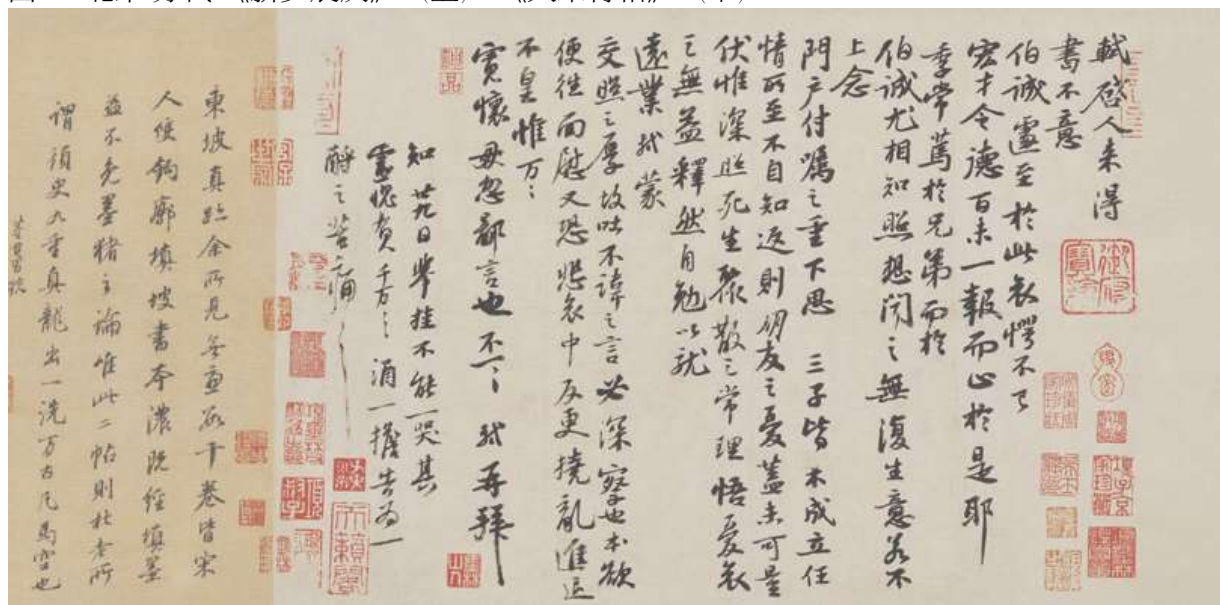 軾啓人來得
書不意
伯誠遽至於此哀愕不已
宏才令德百未一報而止於是耶
季常篤於兄弟而於
伯誠尤相知照想聞之無復生意若不
上念
門户付囑之重下思 三子皆未成立任
情所至不自知返則朋友之憂蓋未可量
伏惟深照死生聚散之常理悟憂哀
之無益釋然自勉以就
遠業軾蒙
交照之厚故吐不諱之言必深察也本欲
便往面慰又恐悲哀中反更撓亂進退
不皇惟万〻
寬懷毋忽鄙言也不一〻 軾再拜
知廿九日舉挂不能一哭其
靈愧負千万〻酒一擔告為一
酹之苦痛〻
東坡真跡余所見無慮數十卷皆宋
人雙鉤廓填坡書本濃既經填墨
益不免墨豬之論唯此二帖則杜老所
謂須臾九重真龍出一洗萬古凡馬空也
董其昌題
御府寶繪
項子京家珍藏
天籟閣